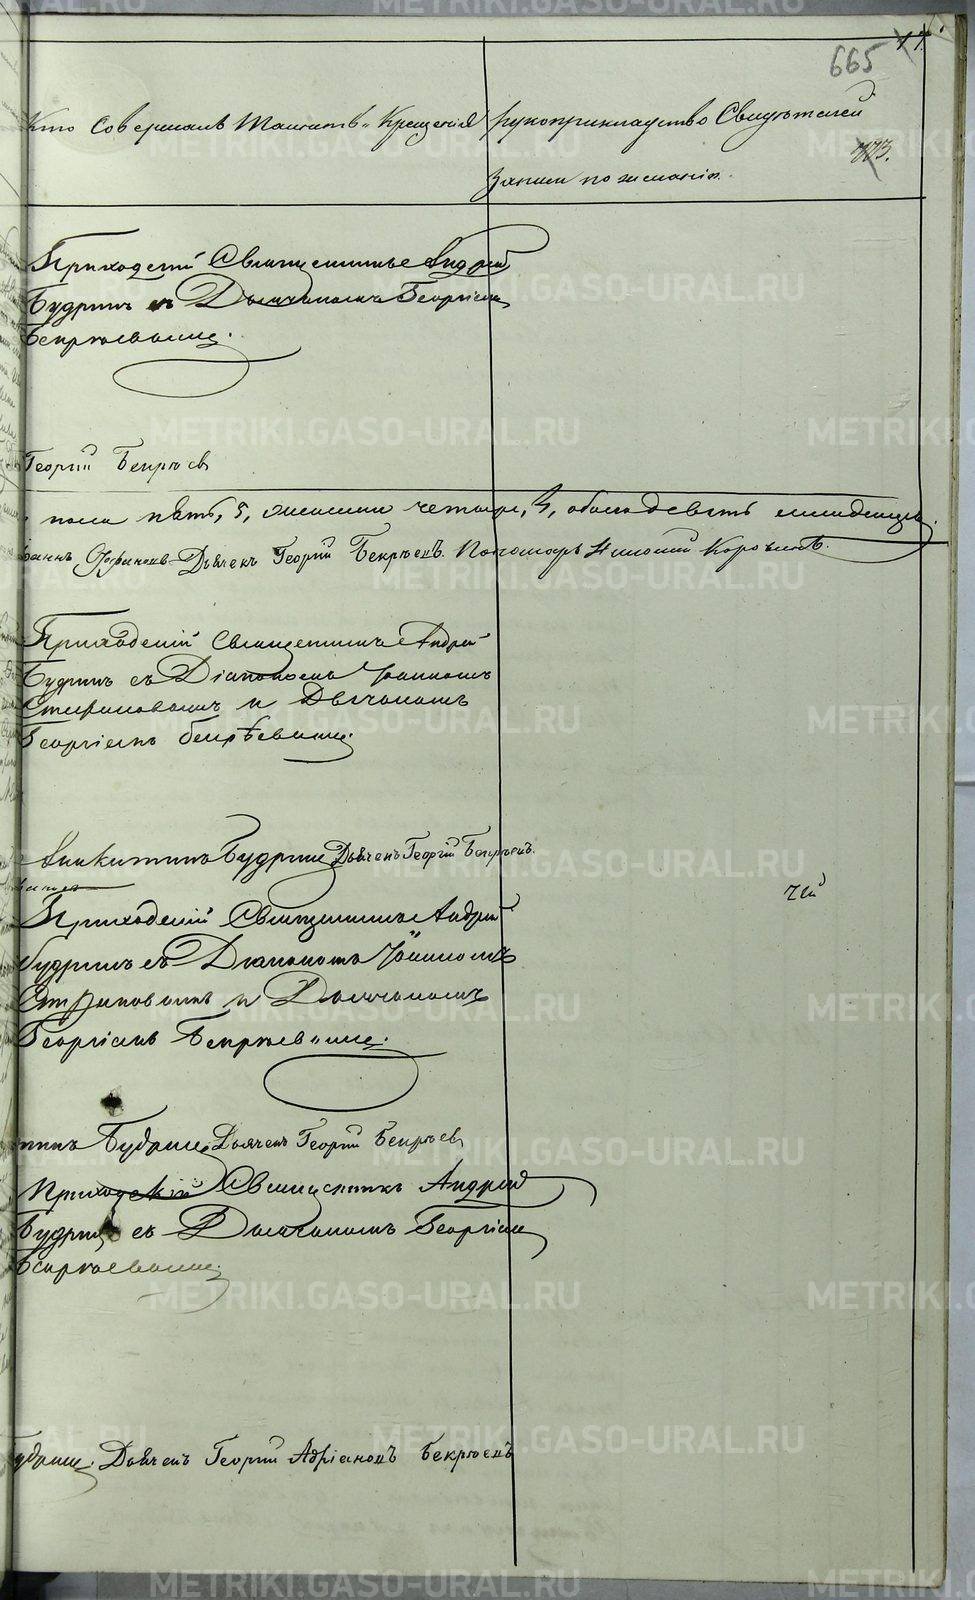 665
Кто совершалъ таинство Крещенія
рукоприкладство Свидѣтелей
записи по желанію.
Приходскій Священникъ Андрей
Будринъ съ Дьячкомъ Георгіемъ
Бекрѣевымъ.
Георгій Бекрѣевъ
пола пять, 5, женска четыре, 4, обоего девять младенцевъ.
Дьячекъ Георгій Бекрѣевъ. Пономарь
Приходскій Священникъ Андрей
Будринъ съ Діакономъ Іоанномъ
и Дьячкомъ
Георгіемъ Бекрѣевымъ.
Будринъ Дьячекъ Георгій Бекрѣевъ.
Приходскій Священникъ Андрей
Будринъ съ Діакономъ Іоанномъ
и Дьячкомъ
Георгіемъ Бекрѣевымъ.
Будринъ. Дьячекъ Георгій Бекрѣевъ
Приходскій Священникъ Андрей
Будринъ съ Дьячкомъ Георгіемъ
Бекрѣевымъ.
Будринъ. Дьячекъ Георгій Адріановъ Бекрѣевъ
METRIKI.GASO-URAL.RU